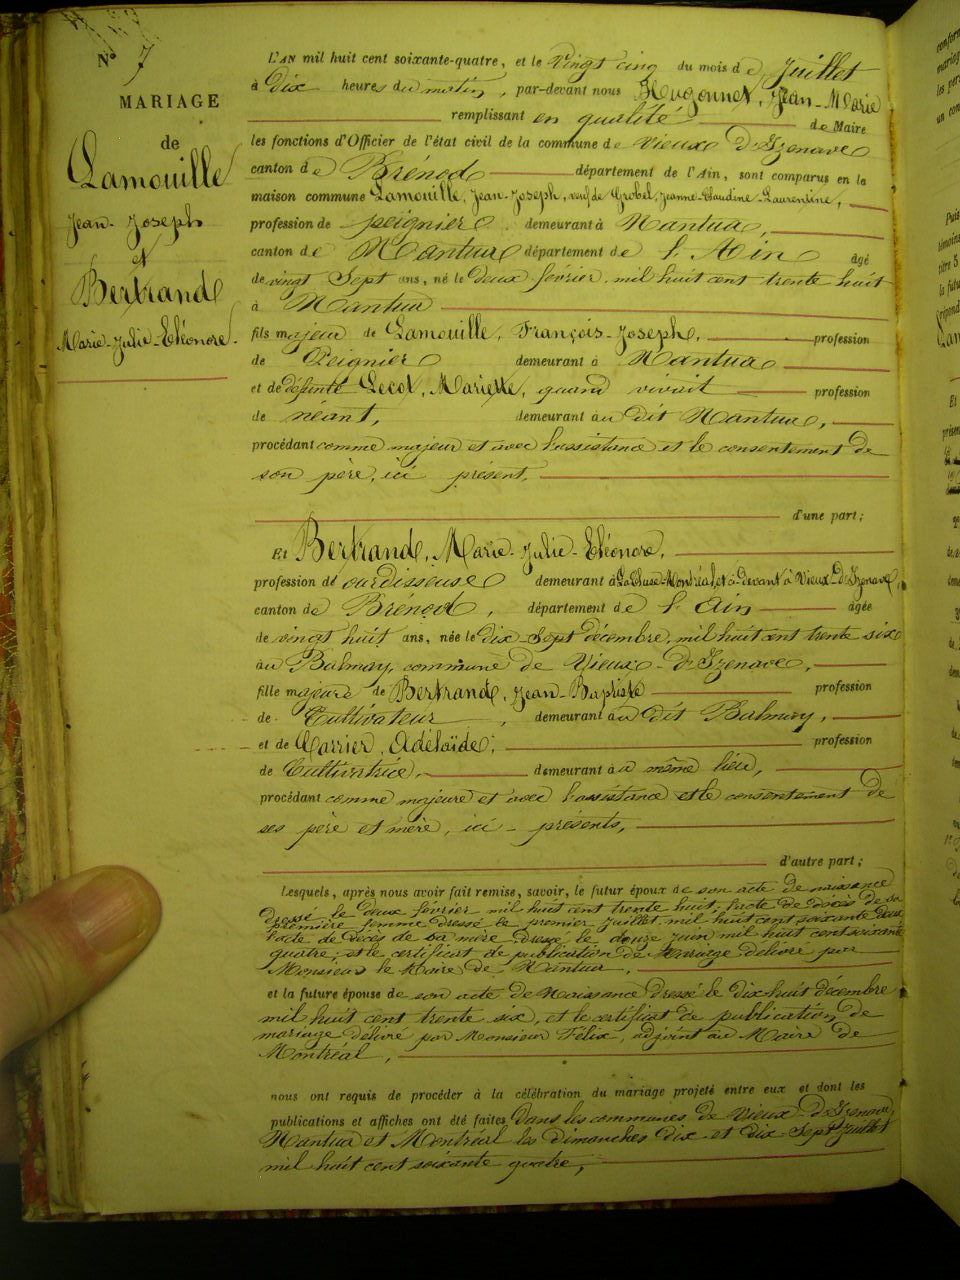 N° 7
MARIAGE
de
Lamouille
Jean-Joseph
et
Bertrand
Marie-Julie-Eléonore.
L'AN mil huit cent soixante-quatre, et le vingt cinq du mois de Juillet
à dix heures du matin, par-devant nous Hugonnet, Jean-Marie
remplissant en qualité de Maire
les fonctions d'Officier de l'état civil de la commune de Vieux-D'Izenave
canton de Brénod département de l'Ain, sont comparus en la
maison commune Lamouille, Jean-Joseph, veuf de Grobel, Jeanne-Claudine-Laurentine,
profession de peignier demeurant à Nantua,
canton de Nantua département de l'Ain âgé
de vingt Sept ans, né le deux février mil huit cent trente huit
à Nantua
fils majeur de Lamouille, François-Joseph, profession
de Peignier demeurant à Nantua
et de défunte Lecot, Mariette, quand vivait profession
de néant, demeurant au dit Nantua,
procédant comme majeur et avec l'assistance et le consentement de
son père, ici présent,
d'une part;
Et Bertrand, Marie-Julie-Eléonore,
profession de ourdisseuse demeurant à La Cluse-Montréal et ci-devant à Vieux-D'Izenave,
canton de Brénod, département de l'Ain âgée
de vingt huit ans, née le dix-Sept décembre, mil huit cent trente six
au Balmay, commune de Vieux-D'Izenave,
fille majeure de Bertrand, Jean-Baptiste profession
de Cultivateur, demeurant au dit Balmay,
et de Carrier, Adélaïde, profession
de Cultivatrice, demeurant au même lieu,
procédant comme majeure et avec l'assistance et le consentement de
ses père et mère, ici-présents,
d'autre part;
Lesquels, après nous avoir fait remise, savoir, le futur époux de son acte de naissance
dressé le deux février mil huit cent trente huit, l'acte de décès de sa
première femme dressé le premier Juillet mil huit cent soixante deux
l'acte de décès de sa mère dressé le douze Juin mil huit cent soixante
quatre, et le certificat de publication de Mariage délivré par
Monsieur le Maire de Nantua,
et la future épouse de son acte de Naissance dressé le dix huit décembre
mil huit cent trente six, et le certificat de publication de
mariage délivré par Monsieur Félix, adjoint au Maire de
Montréal,
nous ont requis de procéder à la célébration du mariage projeté entre eux et dont les
publications et affiches ont été faites dans les communes de Vieux-D'Izenave,
Nantua et Montréal les dimanches dix et dix-Sept Juillet
mil huit cent soixante quatre,